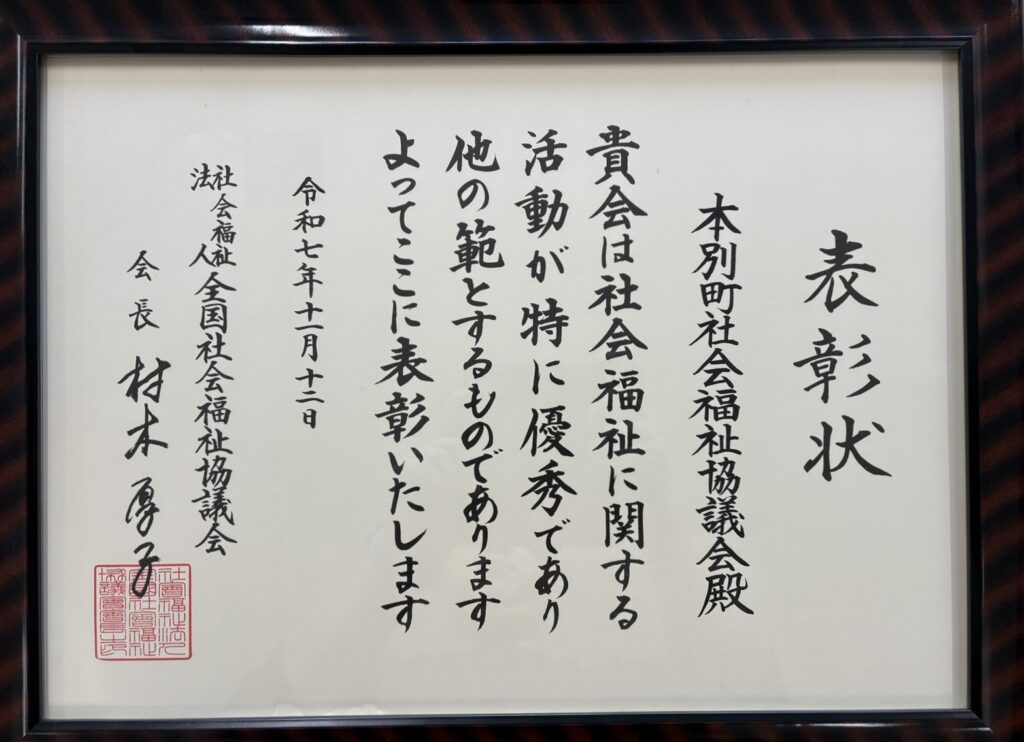 表彰状
本別町社会福祉協議会殿
貴会は社会福祉に関する
活動が特に優秀であり
他の範とするものであります
よってここに表彰いたします
令和七年十一月十二日
社会福祉法人全国社会福祉協議会
会長 村木厚子